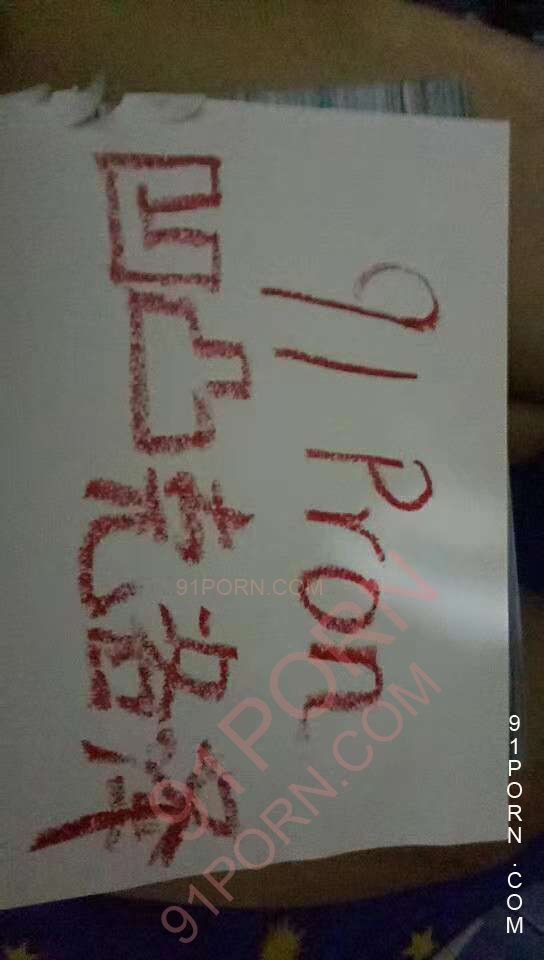 91 Pron
凹凸壳
91PORN.COM
91PORN
91PORN.COM
91PORN.COM